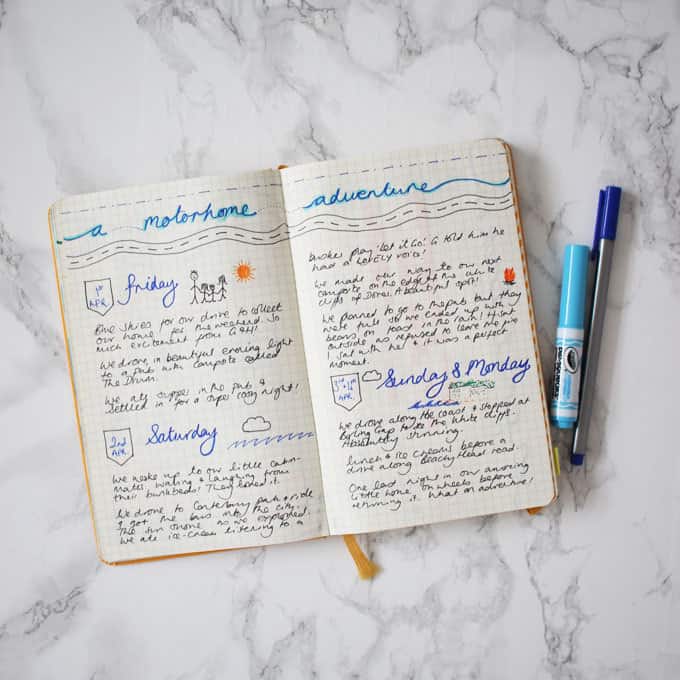 a motorhome adventure
1st APR.
Friday
Blue skies for our drive to collect
our home for the weekend. So
much excitement from G & H!
We drove in beautiful evening light
to a pub with campsite called
The Drum.
We ate supper in the pub &
settled in for a super cosy night!
2nd APR.
Saturday
We woke up to our little cabin-
mates, waving & laughing from
their bunkbeds! They loved it.
We drove to Canterbury park & ride
& got the bus into the city.
The sun shone as we explored.
We ate ice-cream listening to a
busker play 'Let it Go'. G told him he
had a LOVELY voice!
We made our way to our next
campsite on the edge of the white
cliffs of Dover. A beautiful spot!
We planned to go to the pub but they
were full so we ended up with
beans on toast in the rain! H sat
outside as refused to leave the fire
I sat with her & it was a perfect
moment.
APR.
Sunday & Monday
We drove along the coast & stopped at
Birling Gap to see the white cliffs.
Absolutely stunning.
Lunch & ice creams before a
drive along Beachy Head road.
One last night in our amazing
little home on wheels before
returning it. What an adventure!